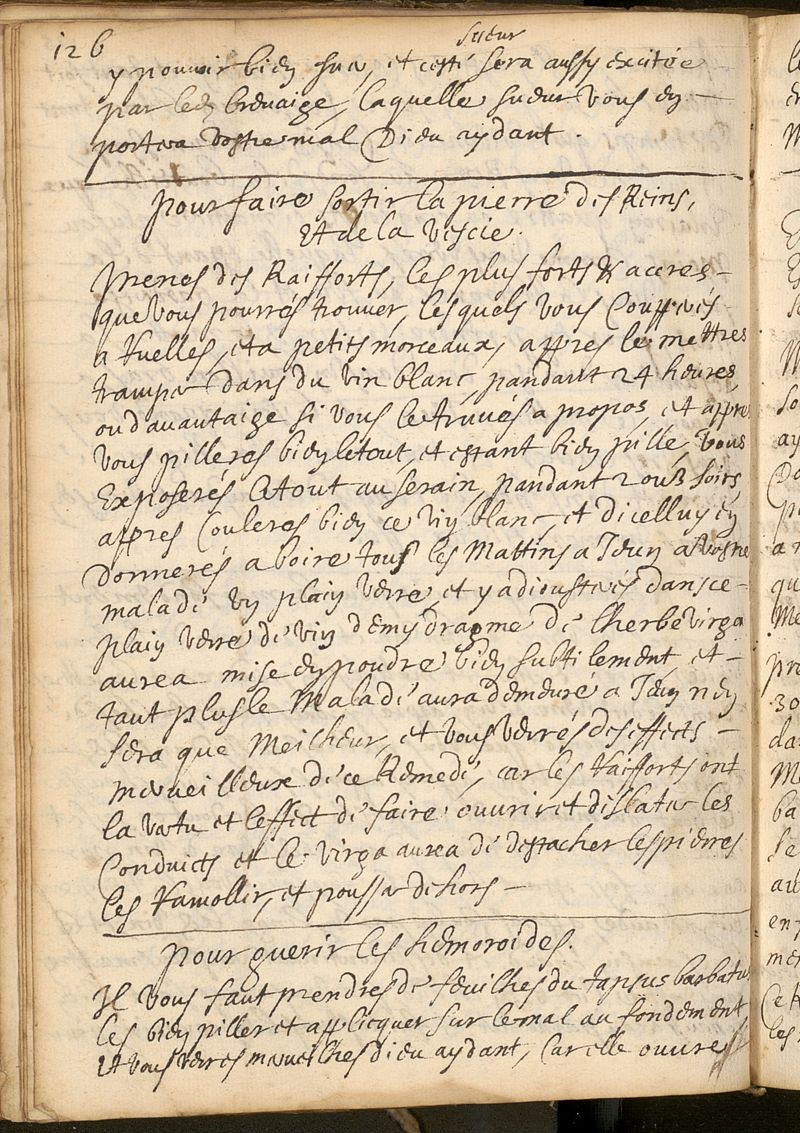 126
sueur
y pouvoir bien suer, et ceste sera aussy excitée
par led. breuaige, laquelle sueur vous en
portera vostre mal Dieu aydant.
pour faire sortir la pierre des Reins,
Et de la vescie.
prenes des Raifforts, les plus forts & aceres
que vous pourrés trouuer, lesquels vous Coupperés
a Ruelles, et a petits morceaux, appres le mettres
tramper dans du vin blanc, pandant 24 heures,
ou dauantaige si vous le truués a propos, et appres
vous pilleres bien le tout, et estant bien pille, vous
Exposerés le tout au serain, pandant 2 ou 3 soirs
appres Couleres bien ce vin blanc, et dicelluy en
donnerés a boire tous les Mattins a Jeun a vostre
malade un plain verre, et y adiousterés dans ce
plain verre de vin demy dragme de lherbe virga
aurea mise en poudre bien subtilement, et
tant plus le Malade aura demeuré a Jeun n'en
sera que Meilheur, et vous verrés des effects
merueilleux de ce Remede, car les Raifforts ont
la vertu et leffect de faire ouurir et dislater les
Conduicts et le virga aurea de destacher les pierres
les Ramollir, et pousser dehors
pour guerir les hemoroides.
Il vous faut prendres de feuilhes du tapsus barbatus
les bien piller et applicquer sur le mal au fondement
Et vous verres merueilhes dieu aydant, Car elle ouure